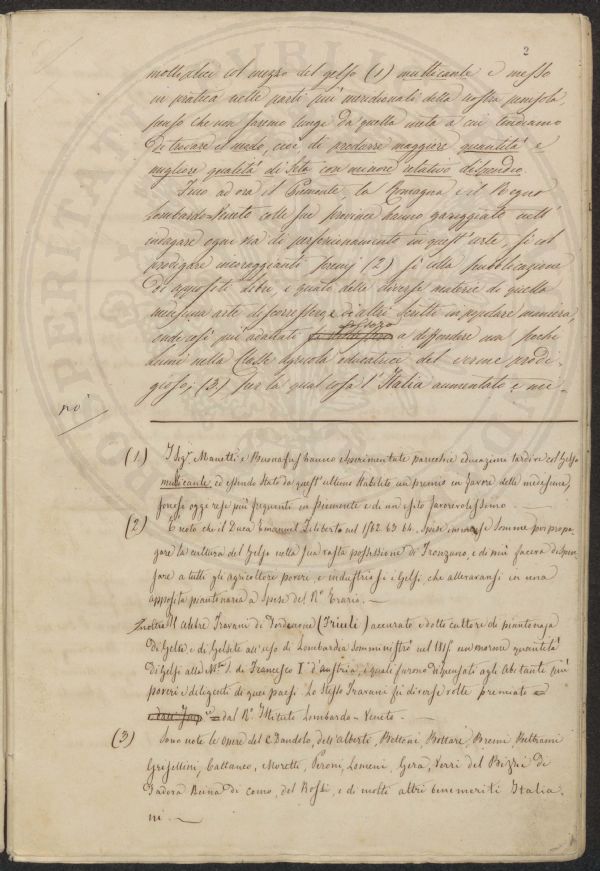 2
moltiplici col mezzo del gelso (1) multicaule e messo
in pratica nelle parti più meridionali della nostra penisola,
penso che non saremo lunge da quella meta a cui tendiamo
di trovare il modo, cioè, di produrre maggiore quantità e
migliore qualità di seta con minore relativo dispendio.
Fino ad ora il Piemonte, la Romagna e il Regno
Lombardo-Veneto colle sue province hanno gareggiato nell'
indagare ogni via di perfezionamento in quest'arte, sì col
prodigare incoraggianti premj (2) sì colla pubblicazione
di appositi libri e quali delle diverse materie di quella
medesima arte discorressero e di altri scritti in popolare maniera,
onde così più adattate fossero a diffondere non pochi
lumi nella classe agricola educatrice del verme prodi-
gioso; (3) per la qual cosa l'Italia aumentato e mi-
no'
(1) I Sigri Manetti e Buonafus hanno esperimentate parecchie educazioni tardive col Gelso
multicaule, ed essendo stato da quest'ultimo stabilito un premio in favore delle medesime,
forse oggi rese più frequenti in Piemonte e di un esito favorevolissimo.
(2) È noto che il Duca Emanuel Filiberto nel 1562. 63. 64. spese immense somme per propa-
gare la cultura del Gelso nella sua vasta possessione di Fronzano, e di più faceva dispen-
sare a tutti gli agricoltori poveri e industriosi i Gelsi, che allevavansi in una
apposita piantonaia a spese del Ro Erario. —
Inoltre il celebre Fravani di Pordenone (Friuli) accurato e dotto cultore di piantonaja
di Gelsi e di Gelsete all'uso di Lombardia somministrò nel 1815 un enorme quantità
di Gelsi alla M. S. di Francesco Io d'Austria, i quali furono dispensati agli Abitanti più
poveri e diligenti di quei paesi. Lo stesso Fravani fu diverse volte premiato
dal Ro Istituto Lombardo-Veneto. —
(3) Sono note le opere del C. Dandolo, dell'Alberti, Bettoni, Bottari, Bremi, Beltrami
Griselini, Cattaneo, Moretti, Peroni, Lomeni, Gera, Verri del Bizzi di
Padova Reina di Como, del Rossi, e di molti altri benemeriti Italia-
ni. —